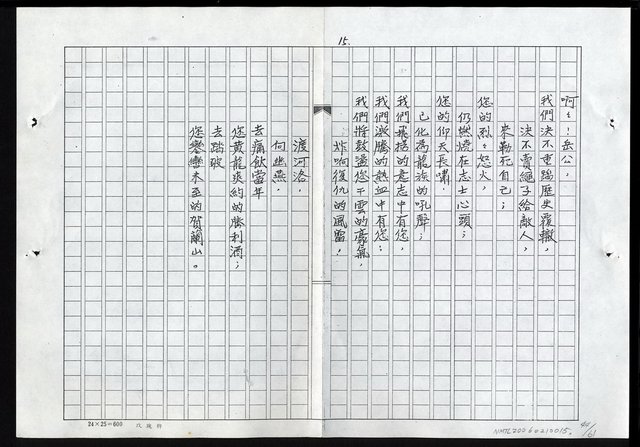 15.
啊！岳公，
我們決不重蹈歷史覆轍，
決不賣繩子給敵人，
來勒死自己；
您的烈烈怒火，
仍燃燒在志士心頭；
您的仰天長嘯，
已化為龍族的吼聲；
我們飛揚的意志中有您，
我們激騰的熱血中有您；
我們將鼓盪您干雲的豪氣，
炸响復仇的風雷！
渡河洛，
向幽燕，
去痛飲當年
您黃龍爽約的勝利酒；
去踏破
您戀戀未至的賀蘭山。
24×25=600
NMTL20060210015
44/61